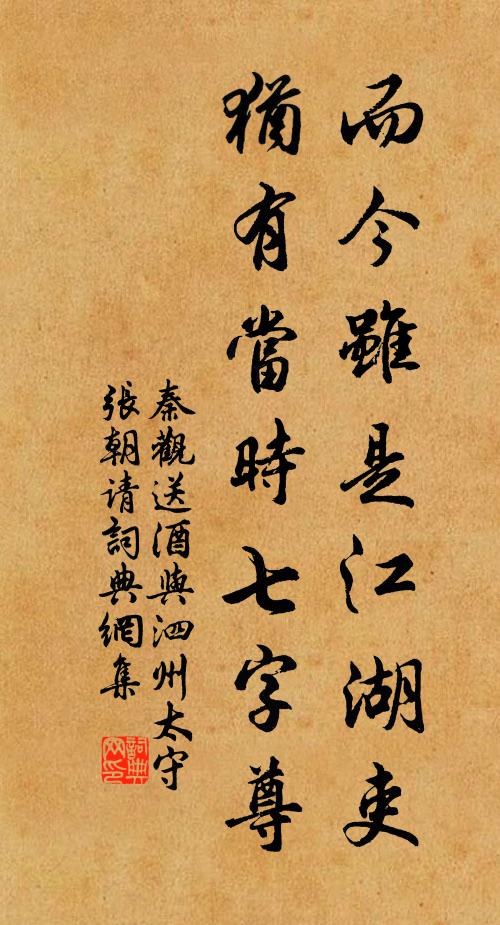 而今雖是江湖吏
猶有當時七字尊
秦觀送酒與泗州太守
張朝请詞典網集
詞典网印